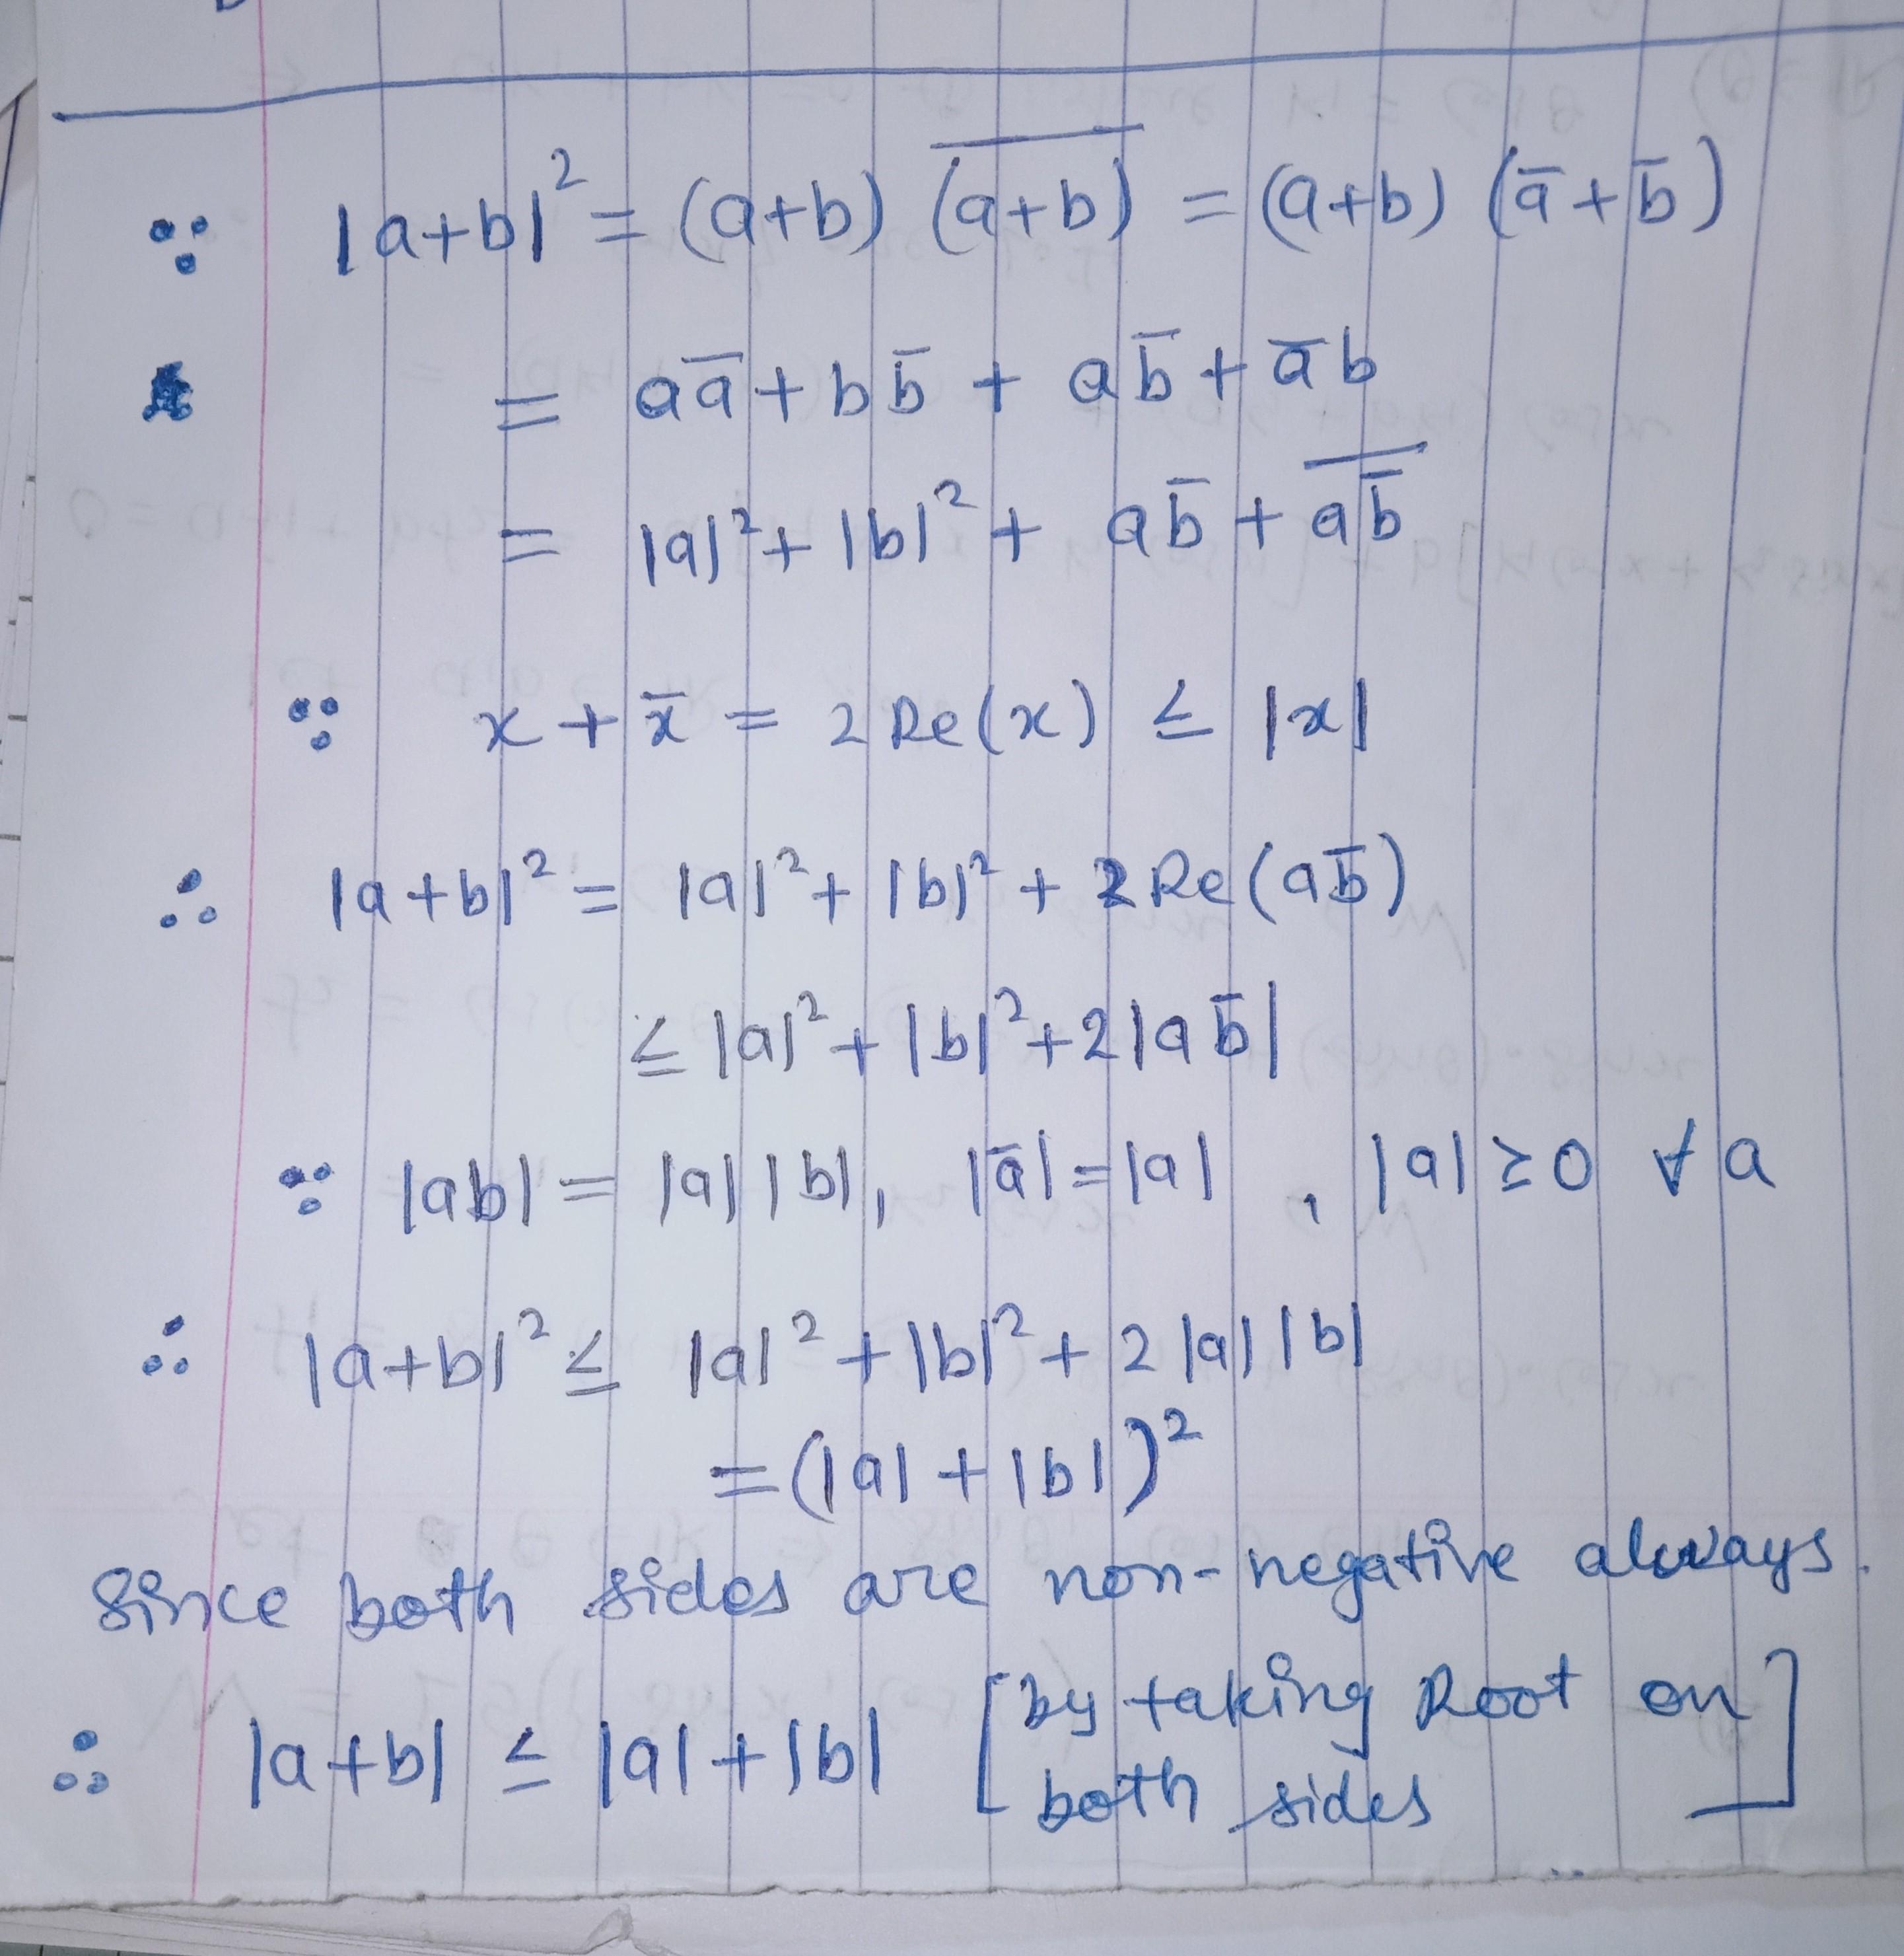 ∵ |a+b|² = (a+b) \overline{(a+b)} = (a+b) (ā+b̄)
= aā + bb̄ + ab̄ + āb
= |a|² + |b|² + ab̄ + \overline{ab̄}
∵ x + x̄ = 2 Re(x) ≤ |x|
∴ |a+b|² = |a|² + |b|² + 2 Re(ab̄)
≤ |a|² + |b|² + 2|ab̄|
∵ |ab| = |a| |b|, |ā| = |a| , |a| ≥ 0 ∀ a
∴ |a+b|² ≤ |a|² + |b|² + 2 |a| |b|
= (|a| + |b|)²
Since both sides are non-negative always.
∴ |a+b| ≤ |a| + |b| [by taking Root on
both sides]